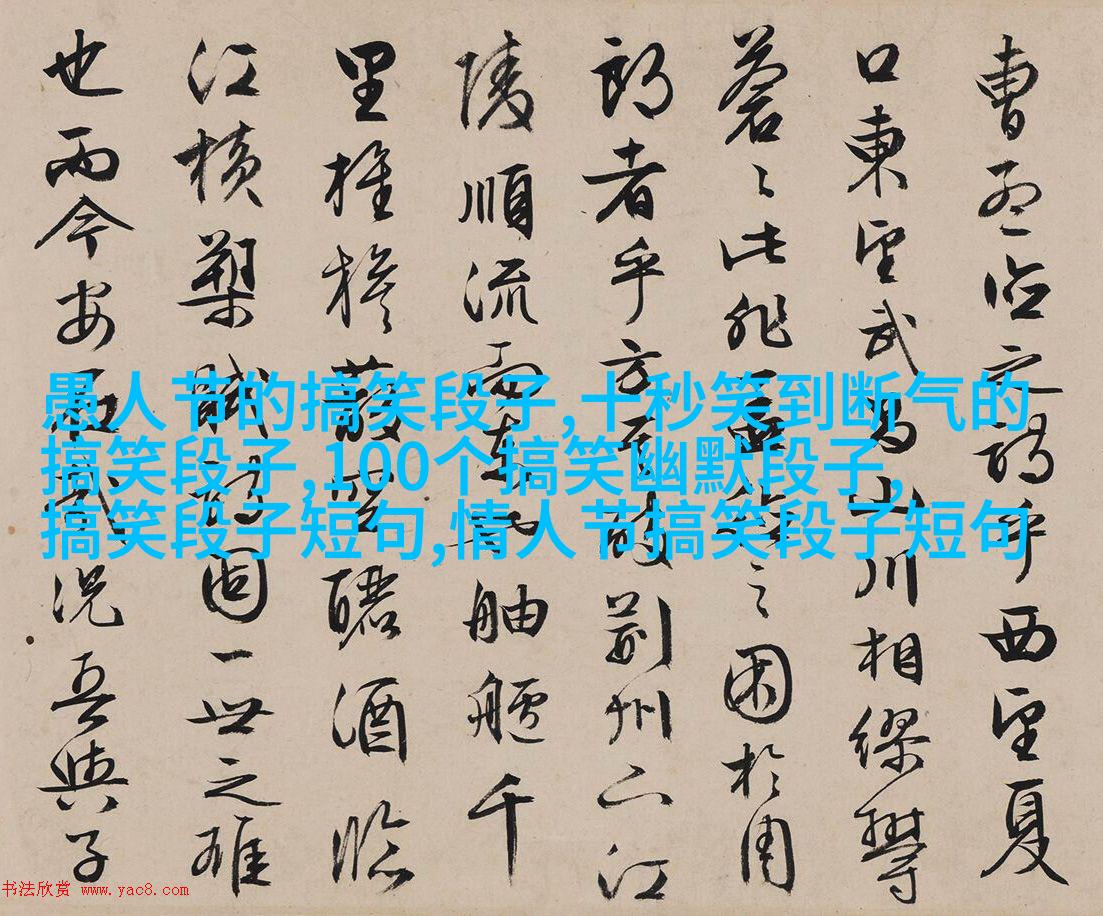 曹孟德之詩乎西望夏
口東望武昌山川相繆鬱
蒼〻此非孟德之困於周
郎者乎方其破荊州下江
陵順流而東也舳艫千
里旌旗蔽空釃酒臨
江橫槊賦詩固一世之雄
也而今安在哉況吾與子
愚人节的搞笑段子,十秒笑到断气的
搞笑段子,100个搞笑幽默段子,
搞笑段子短句,情人节搞笑段子短句
书法欣赏 www.yac8.com